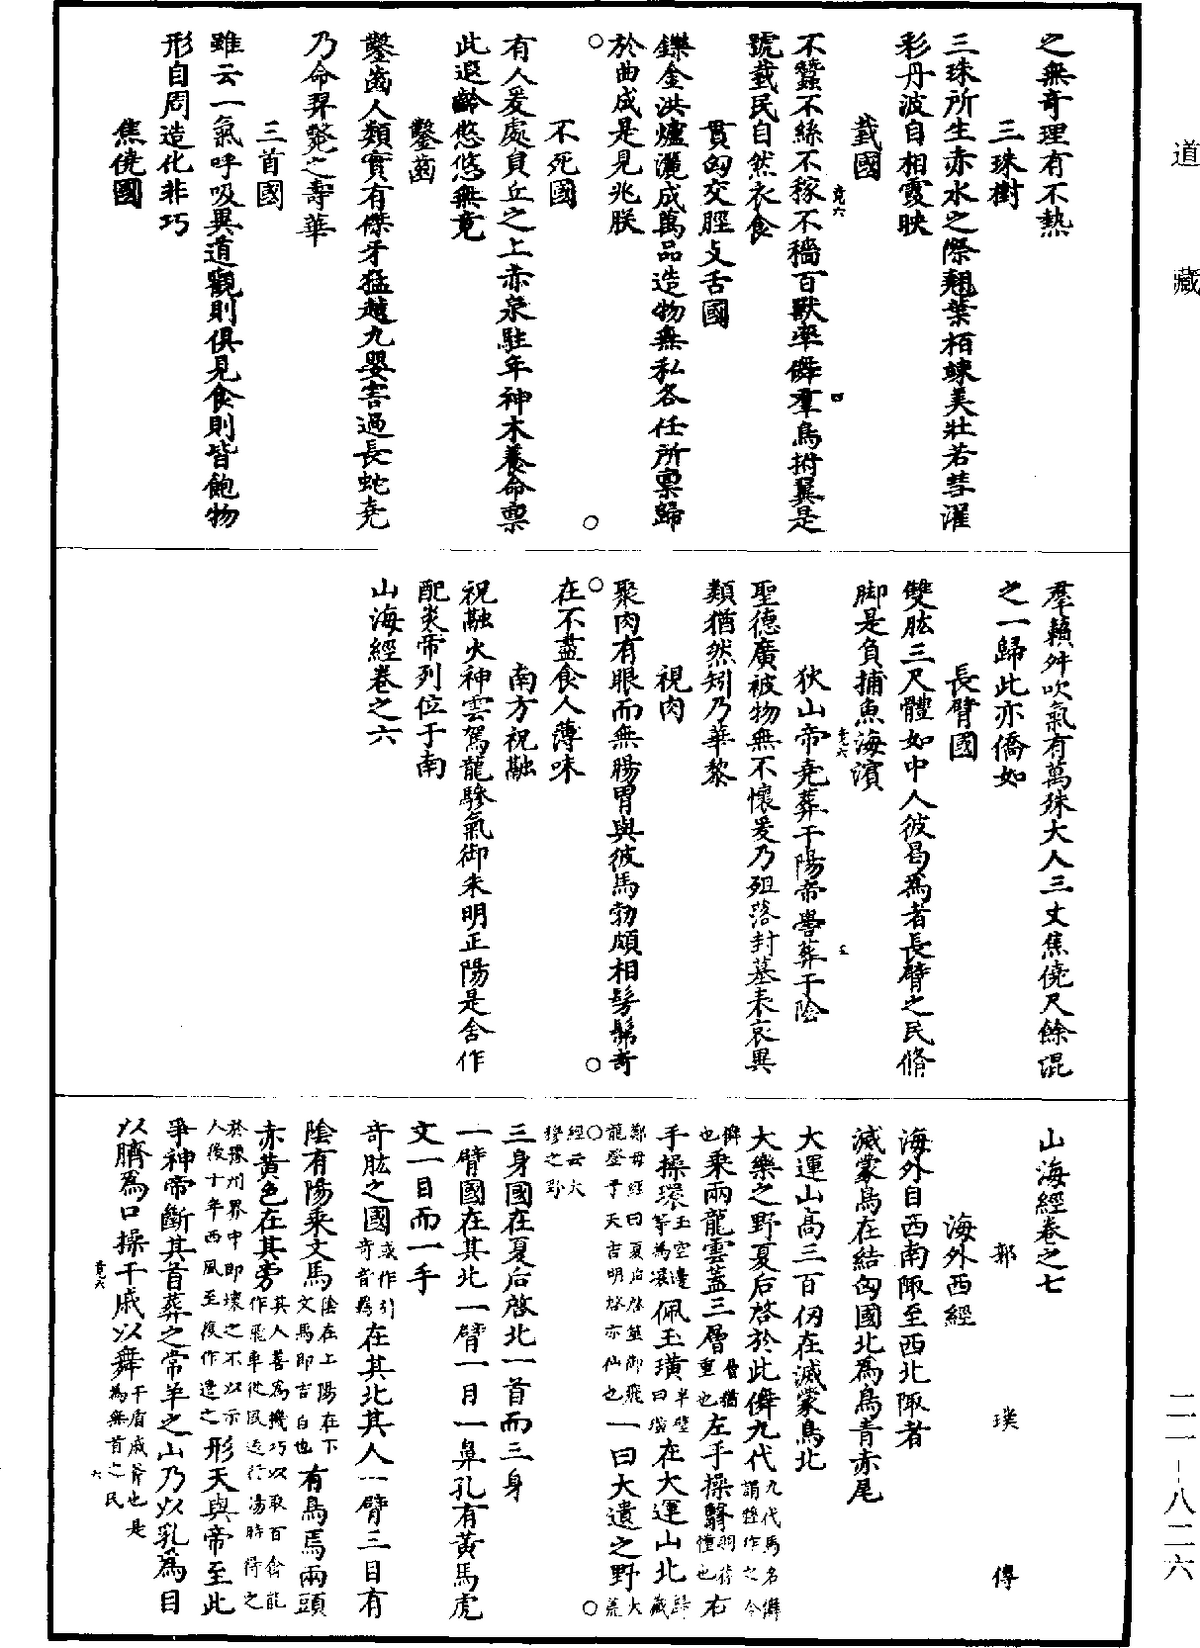 道藏
之無奇理有不熱
三珠樹
三珠所生赤水之際翹葉栢竦美壯若彗濯
彩丹波自相霞映
臷國
不蠶不絲不稼不穡百獸率儛羣鳥拊翼是
號臷民自然衣食
貫匈交脛支舌國
鑠金洪爐灑成萬品造物無私各任所禀歸
於曲成是見兆朕
不死國
有人爰處員丘之上赤泉駐年神木養命禀
此遐齡悠悠無竟
鑿齒
鑿齒人類實有傑牙猛越九嬰害過長蛇堯
乃命羿斃之壽華
三首國
雖云一氣呼吸異道觀則俱見食則皆飽物
形自周造化非巧
焦僥國
羣籟舛吹氣有萬殊大人三丈焦僥尺餘混
之一歸此亦僑如
長臂國
雙肱三尺體如中人彼曷為者長臂之民脩
脚是負捕魚海濱
狄山帝堯葬于陽帝嚳葬于陰
聖德廣被物無不懷爰乃殂落封墓表哀異
類猶然矧乃華黎
視肉
聚肉有眼而無腸胃與彼馬勃頗相髣髴奇
在不盡食人薄味
南方祝融
祝融火神雲駕龍驂氣御朱明正陽是含作
配炎帝列位于南
山海經卷之六
山海經卷之七
郭璞傳
海外西經
海外自西南陬至西北陬者
滅蒙鳥在結匈國北為鳥青赤尾
大運山高三百仞在滅蒙鳥北
大樂之野夏后啓於此儛九代九代馬名儛謂盤作之令
儛也乘兩龍雲蓋三層層猶重也左手操翳羽葆幢也右
手操環玉空邊等為環佩玉璜半璧曰璜在大運山北歸藏
鄭母經曰夏后啓筮御飛龍登于天吉明啓亦仙也一曰大遺之野大荒
經云大穆之野
三身國在夏后啓北一首而三身
一臂國在其北一臂一目一鼻孔有黃馬虎
文一目而一手
奇肱之國或作弘奇音羈在其北其人一臂三目有
陰有陽乘文馬陰在上陽在下文馬即吉白也有鳥焉兩頭
赤黃色在其旁其人善為機巧以取百禽能作飛車從風遠行湯時得之
於豫州界中即壞之不以示人後十年西風至復作遣之形天與帝至此
爭神帝斷其首葬之常羊之山乃以乳為目
以臍為口操干戚以舞干盾戚斧也是為無首之民
二一-八二六